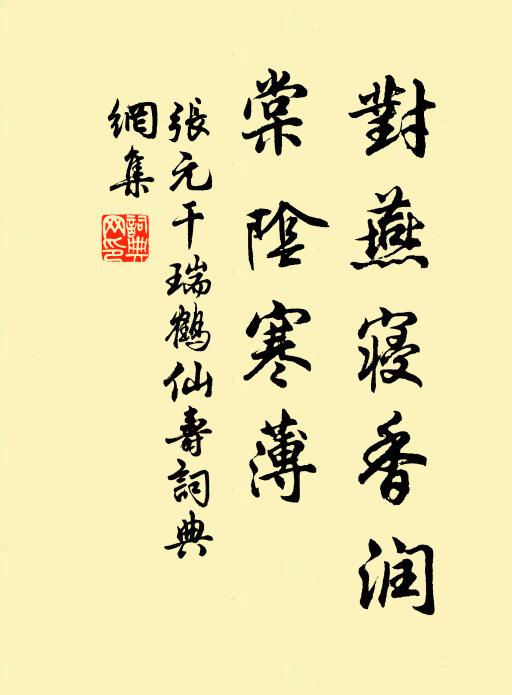 對燕寢香润
棠陰寒薄
張元干瑞鶴仙壽詞典
網集
詞典
网印